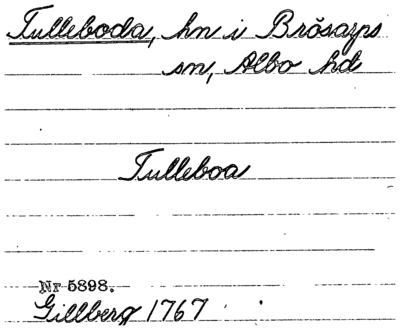 Tulleboda, hn i Brösarps
sn, Albo hd
Tulleboa
Nr 5898.
Gillberg 1767